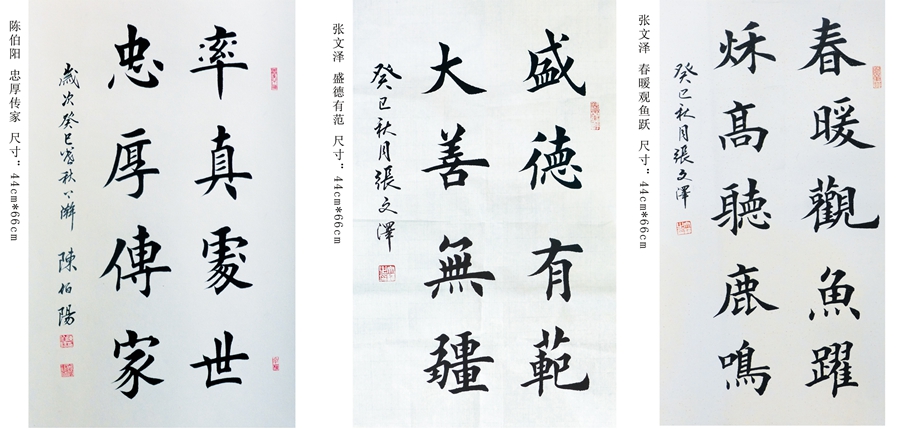 陈伯阳 忠厚传家 尺寸：44cm*66cm
率真處世
忠厚傳家
歲次癸巳
秋
陳伯陽
张文泽 盛德有范 尺寸：44cm*66cm
盛德有範
大善無疆
癸巳秋月張文澤
张文泽 春暖观鱼跃 尺寸：44cm*66cm
春暖觀魚躍
秌高聽鹿鳴
癸巳秋月張文澤